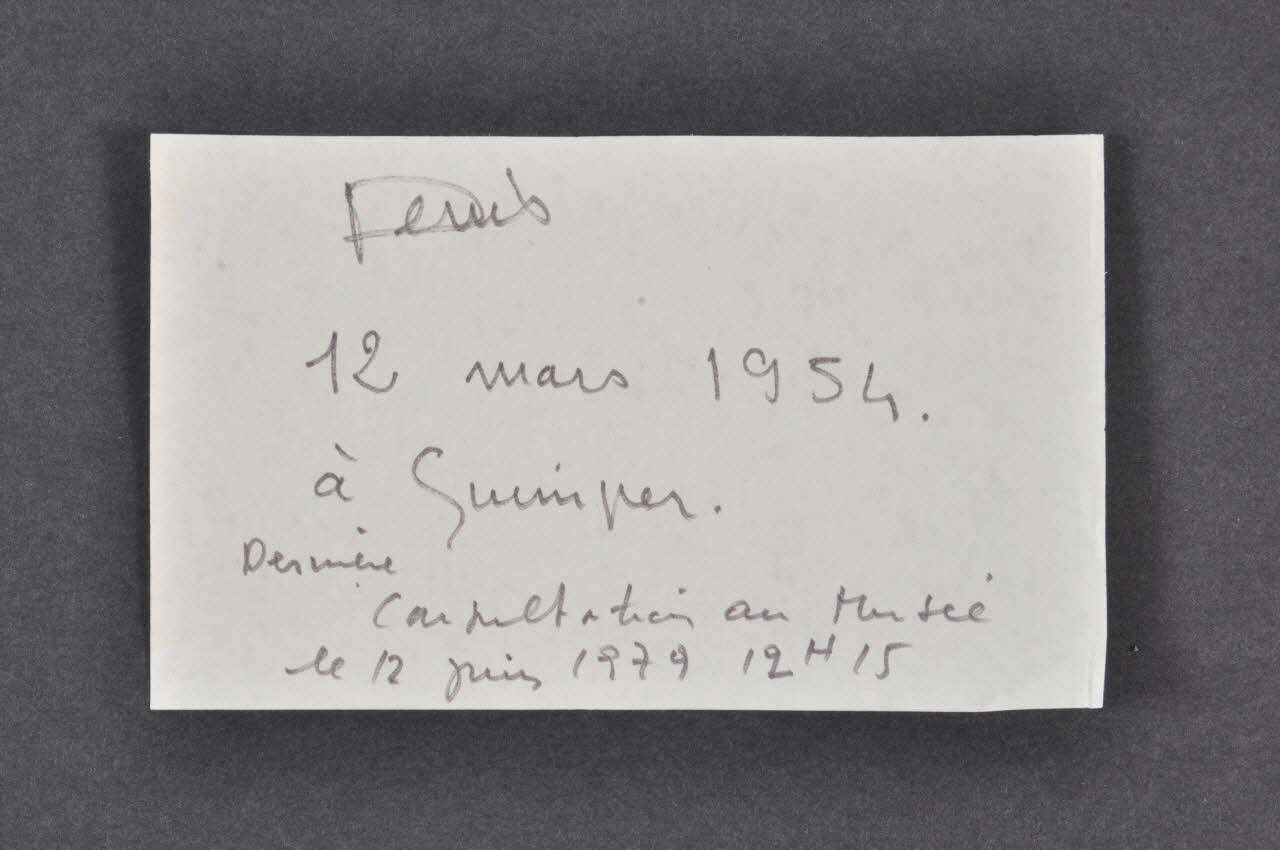 12 mars 1954.
à Quimper.
Dernière
Consultation au Musée
le 12 juin 1979 12H15